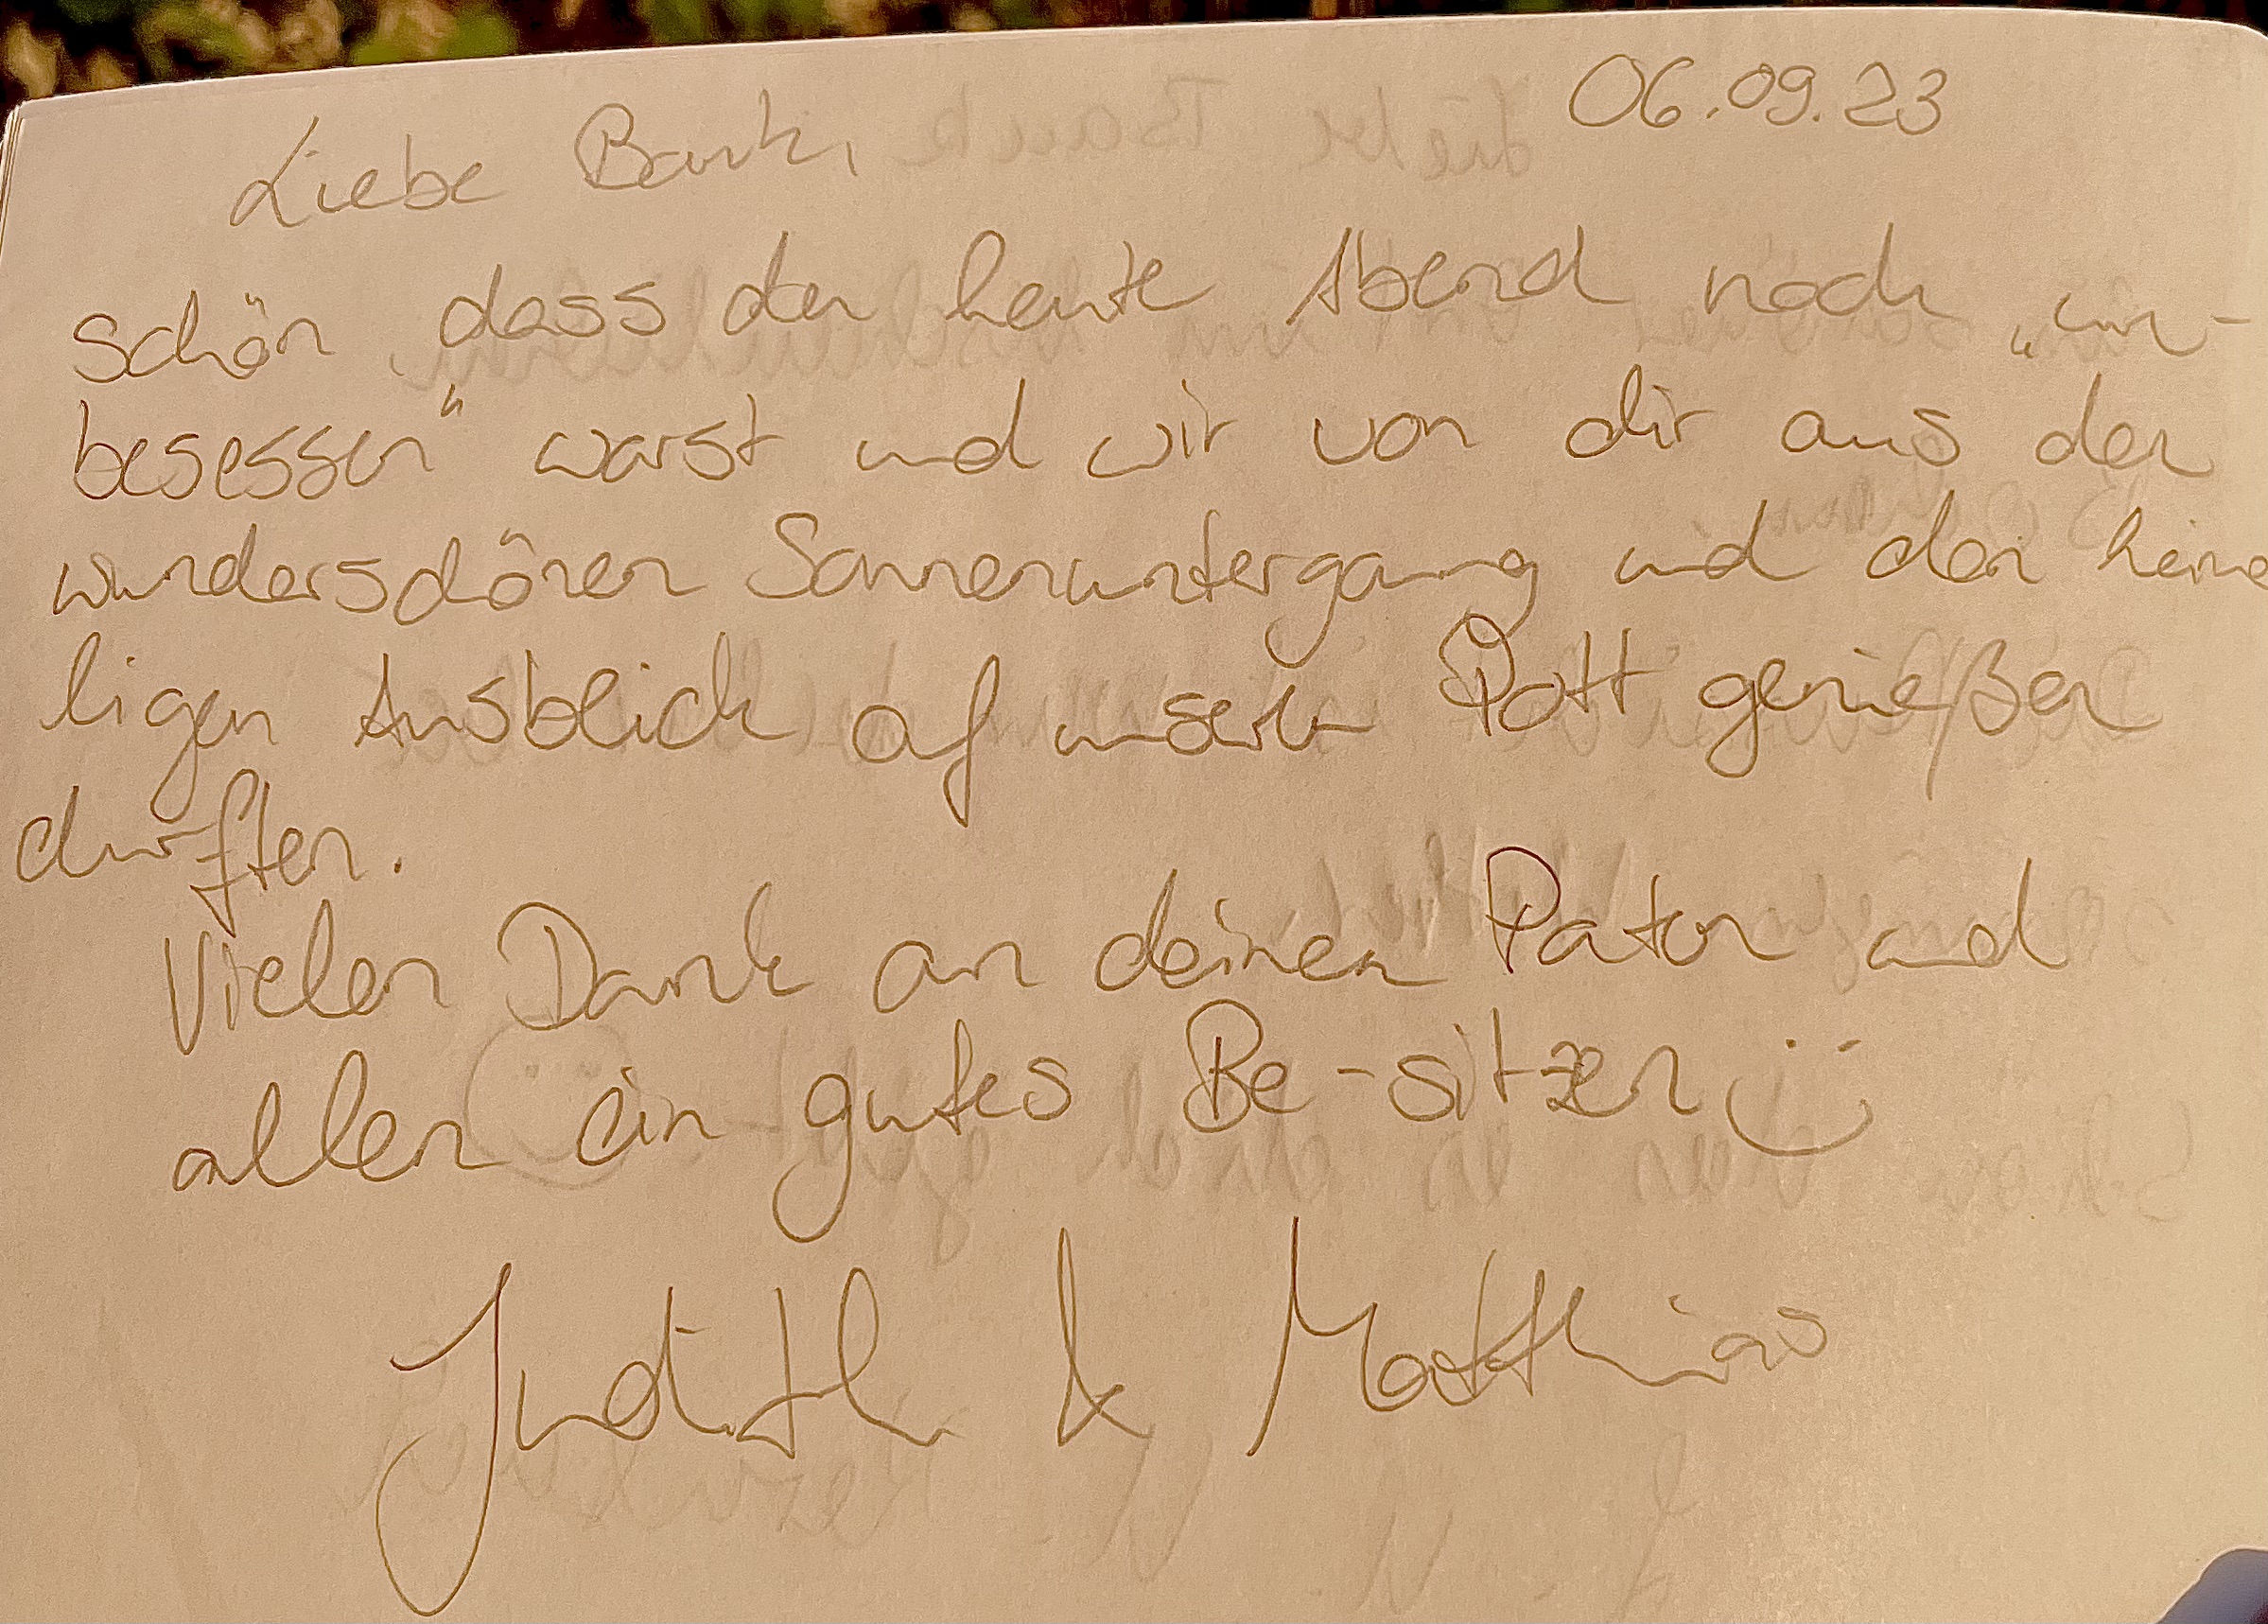 06.09.23
Liebe Bank,
schön, dass du heute Abend noch „un-
besessen" warst und wir von dir aus den
wunderschönen Sonnenuntergang und den heime
ligen Ausblick auf unseren Pott genießen
durften.
Vielen Dank an deinen Paten und
allen ein gutes Be-sitzen :)
Judith & Matthias